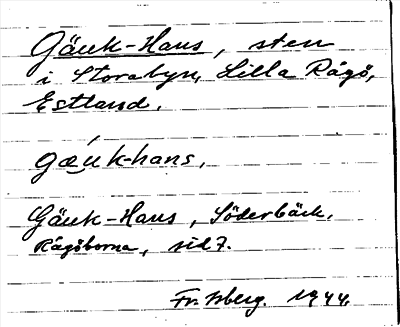 Gäuk-Hans, sten
i Storabyn, Lilla Rågö,
Estland.
gæuk-hans.
Gäuk-Hans, Söderbäck,
Rågöborna, sid 7.
Fr. Isberg. 1944.